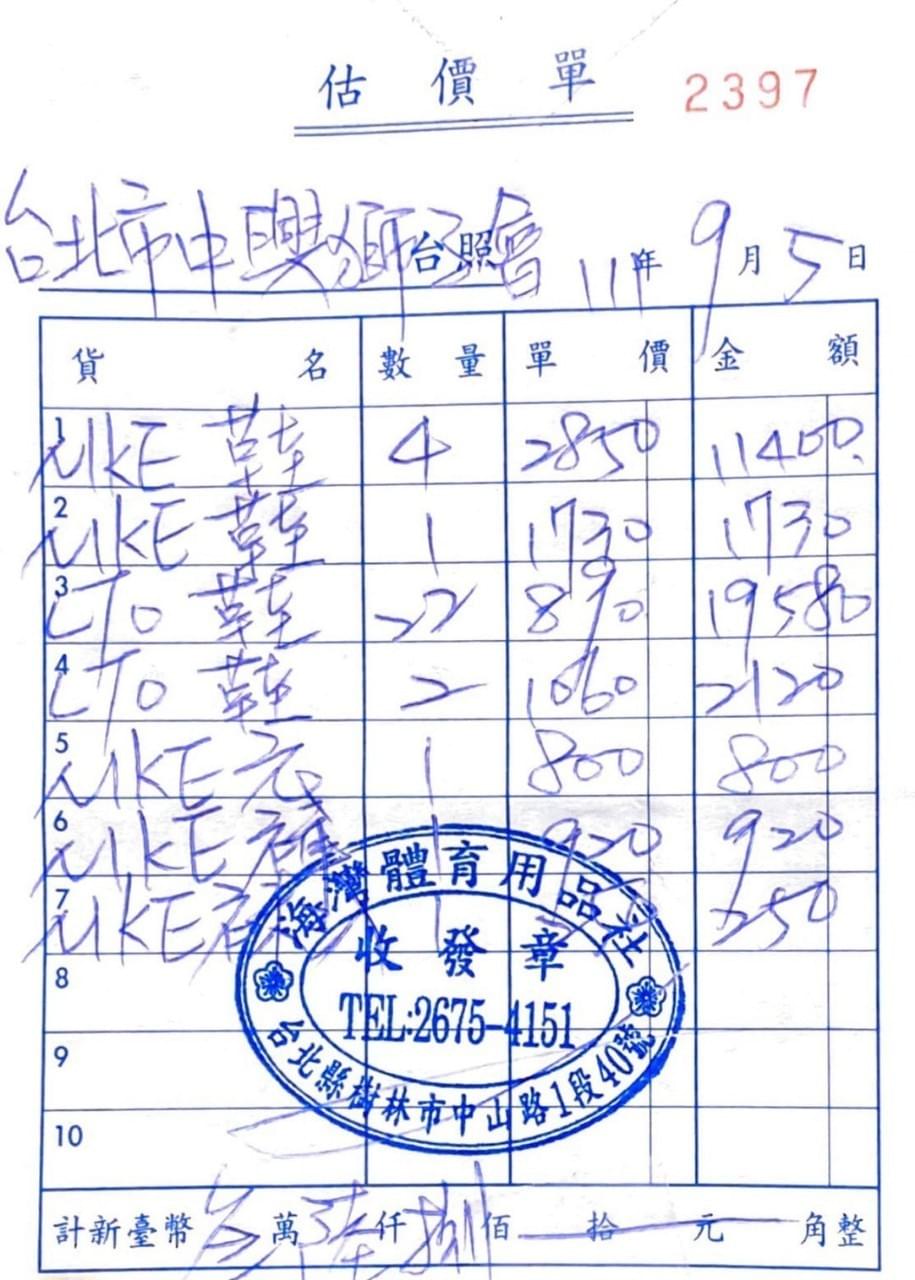 估價單 2397
台北市中興獅子會 台照 111年9月5日
貨名 數量 單價 金額
1 NIKE 鞋 4 2850 11400
2 NIKE 鞋 1 1730 1730
3 LTO 鞋 22 890 19580
4 LTO 鞋 2 1060 2120
5 NIKE 衣 1 800 800
6 NIKE 褲 1 920 920
7 NIKE 1 250
8
9
10
海灣體育用品社
收發章
TEL:2675-4151
台北縣樹林市中山路1段40號
計新臺幣 參萬陸仟捌佰拾元角整